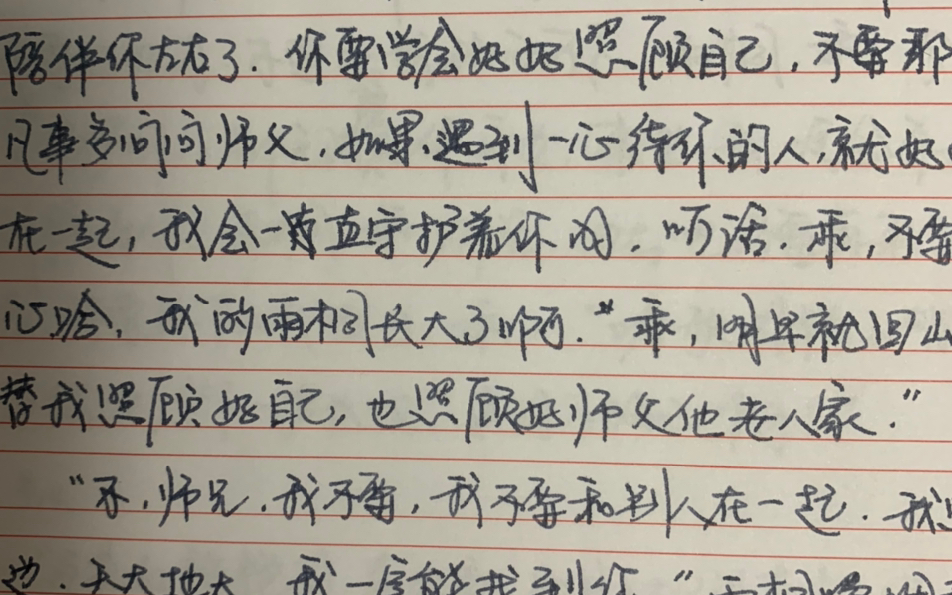 陪伴你左右了.你要学会好好照顾自己,不要那
凡事多问问师父.如果遇到一心待你的人,就好
在一起,我会一直守护着你的.听话.乖,不要
心哈,我的雨桐长大了啊."乖,明早就回山
替我照顾好自己,也照顾好师父他老人家."
"不,师兄.我不要,我不要和别人在一起.我
边.天大地大 我一定能找到你."雨桐